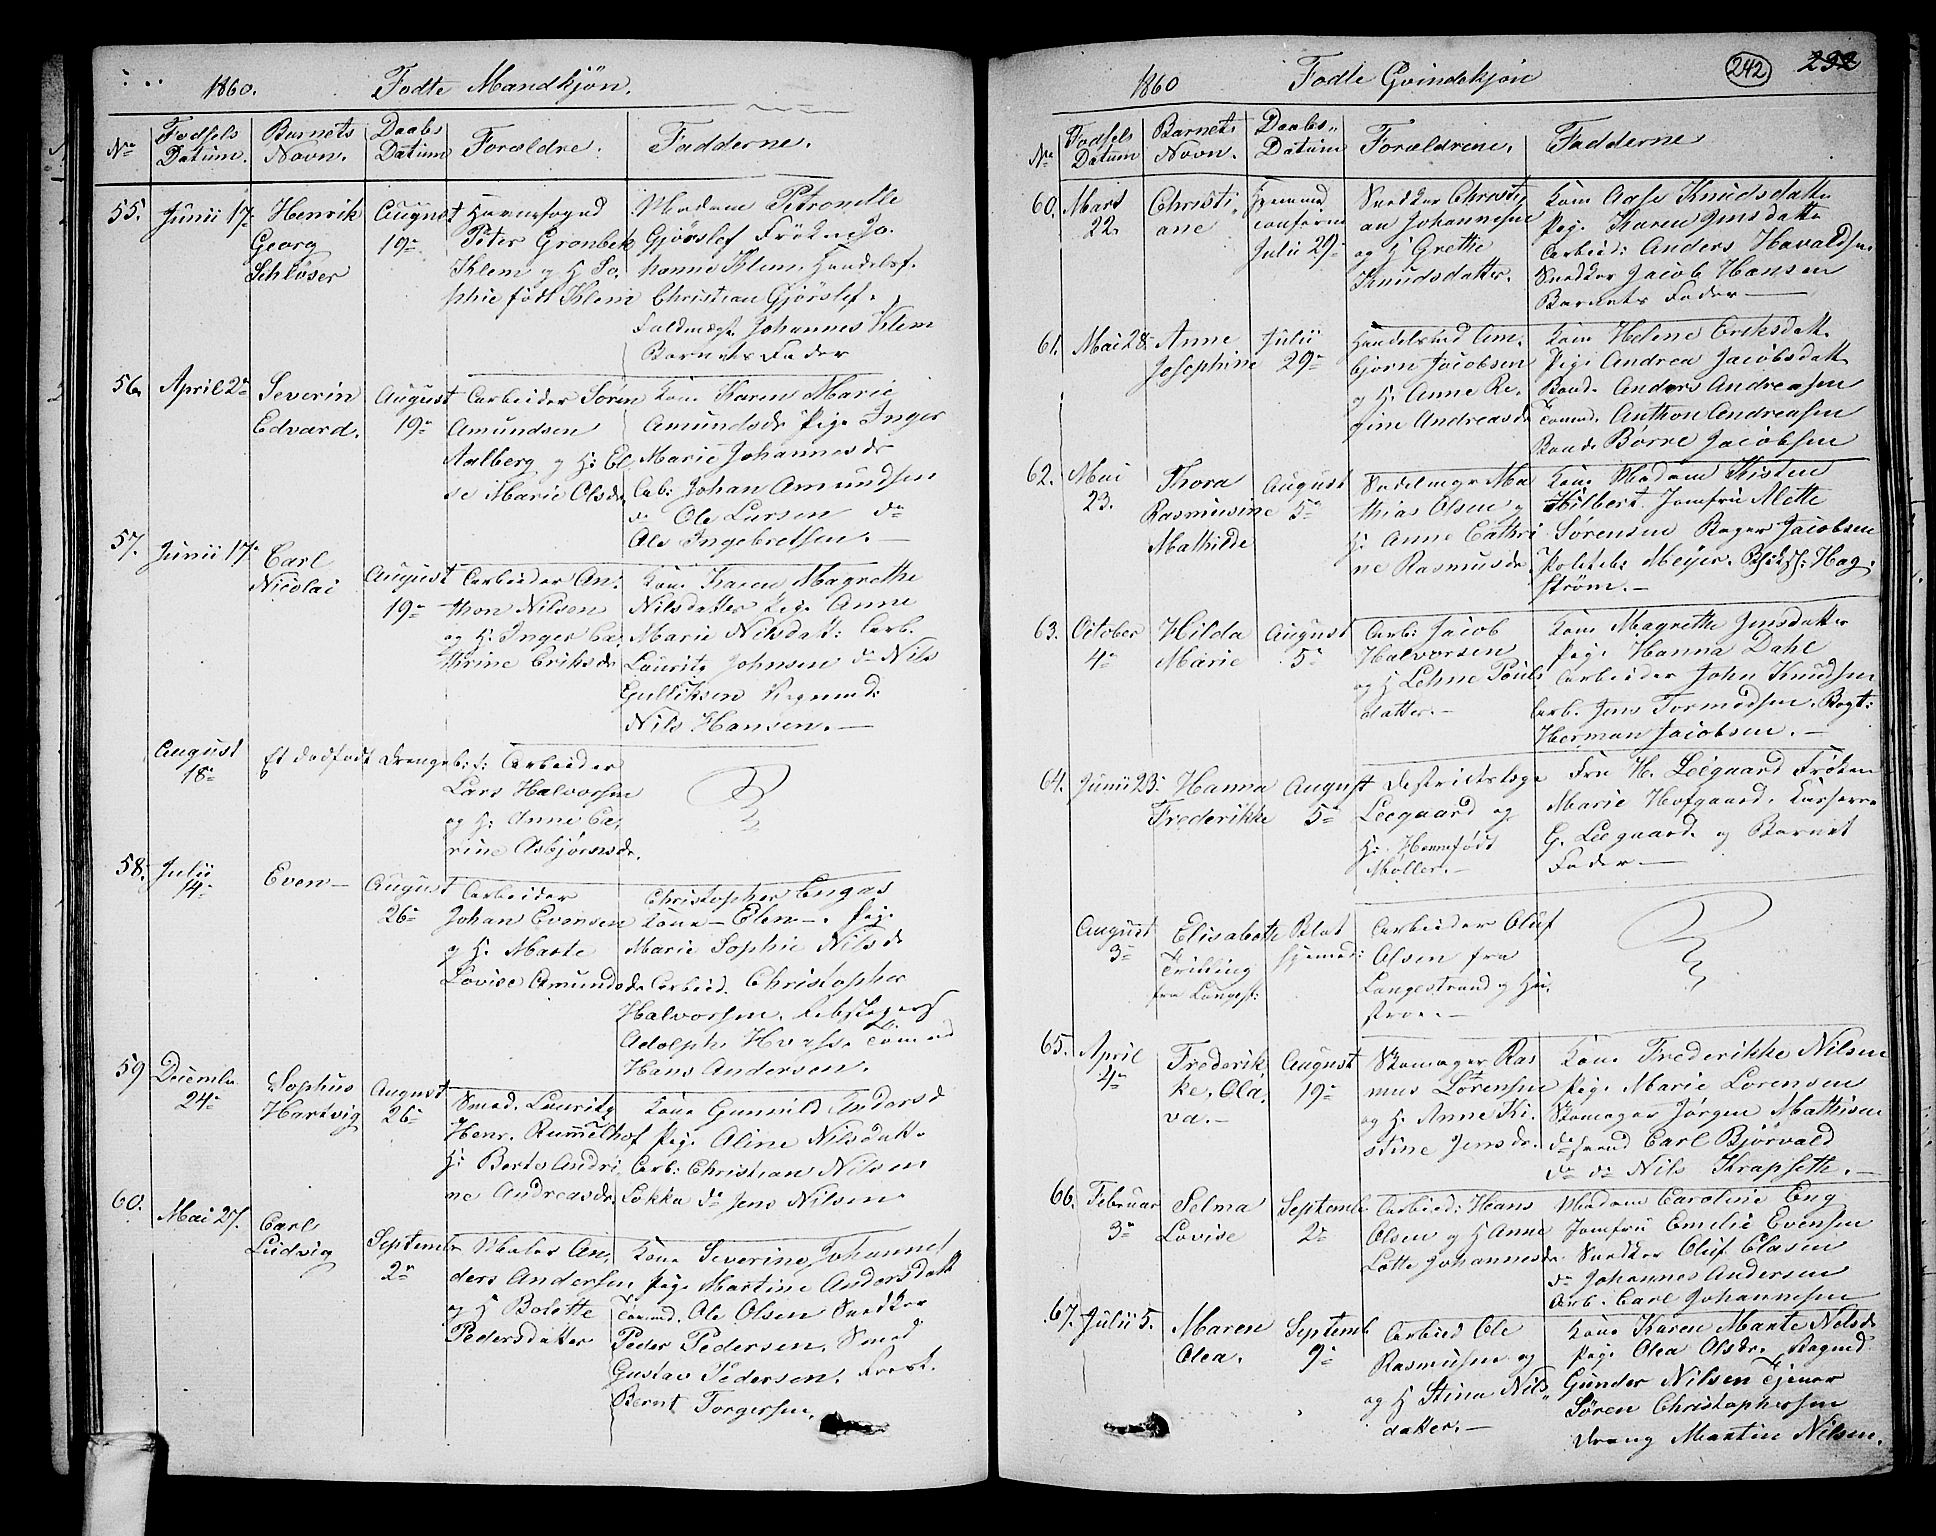 1860. Fødte Mandkjøn.
No Fødsels Datum. Barnets Navn. Daabs Datum Forældre. Fadderne.
55. Junii 17. Henrik Georg Schløser August 19
Peter Grønbek
Klem og H. So
phie født Klem
Madam Petronelle
Gjørslef Frøken Jo
hanne Klem. Handelsf.
Christian Gjørslef.
Fuldmægt. Johannes Klem
Barnets Fader
56. April 2 Severin Edvard. August 19
Arbeider Søren
Amundsen
Aalberg og H: El
se Marie Olsdr
Kone Karen Marie
Amundsdr Pige Inger
Marie Johannesdr
Arb: Johan Amundsen
do Ole Larsen do
Ole Ingebretsen.
57. Junii 17 Carl Nicolai August 19
Arbeider An
thon Nilsen
og H. Inger Ca
thrine Eriksdr
Kone Karen Magrethe
Nilsdatter Pige Anne
Marie Nilsdatt: Arb.
Lauritz Johnsen do Nils
Gulliksen
Nils Hansen.
August 18 Et dødfødt Drengeb:
f: Arbeider
Lars Halvorsen
og H: Anne Ca
rine Asbjørnsdr.
58. Julii 14 Even August 26
Arbeider
Johan Evensen
og H. Marte
Lovise Amundsdr
Christopher Engas
Kone Elen. Pige
Marie Sophie Nilsdr
Arbeid. Christopher
Halvorsen. Rebslagers
Adolph Tømmd
Hans Andersen.
59 Decembr 24 Sophus Hartvig August 26
Smed. Lauritz
Henr. Rummelhof
H: Berte Andri
ne Andreasdr
Kone Gunnild Andersd
Pige Aline Nilsdatt
Arb: Christian Nilsen
Løkka do Jens Nilsen
60. Mai 27. Carl Ludvig Septembr 2
Maler An
ders Andersen
og H Bolette
Pedersdatter
Kone Severine Johannes
Pige Martine Andersdatt
Tømmd. Ole Olsen Snedker
Peder Pedersen. Smed
Gustav Pedersen.
Bernt Torgersen.
1860 Fødte Qvindekjøn
242 232
No Fødsels Datum Barnets Navn. Daabs Datum Forældrene. Fadderne
60. Mars 22. Christiane Hjemmed confirm Julii 29
Snedker Christi
an Johannesen
og H Grethe
Knudsdatter.
Kone Aase Knudsdatter
Pige Karen Jensdatter
Arbeid: Anders Havaldsen
Snedker Jacob Hansen
Barnets Fader
61. Mai 28. Anne Josephine Julii 29
Handelsmd Am
bjørn Jacobsen
og H. Anne Re
gine Andreasdr
Kone Helene Eriksdatt
Pige Andrea Jacobsdatt
Band. Anders Andreasen
Tømmd. Anthon Andreasen
Band. Børre Jacobsen
62. Mai 23. Thora Rasmusine Mathilde August 5
Sadelmager Ma
thias Olsen og
H. Anne Cathri
ne Rasmusdr.
Kone Madam Kisten
Hilbert. Jomfru Mette
Sørensen Bager Jacobsen
Politib: Meyer. Hag
strøm.
63. October 4 Hilda Marie August 5
Arb: Jacob
Halvorsen
og H Lehne Pouls
datter.
Kone Magrethe Jensdatter
Pige Hanna Dahl
Arbeider John Knudsen
Arb. Jens Tormodsen. Bogt:
Herman Jacobsen.
64. Junii 23. Hanna Frederikke August 5
Destriktslæge
Leegaard og
H: Hanne født
Møller.
Fru H. Leegaard Frøken
Marie Hofgaard. Kasserer
G. Leegaard og Barnet
Fader
August 3 Elisabethe Trilling fra Langest: Blot hjemmed:
Arbeider Oluf
Olsen fra
Langestrand og Hu
stroe.
65. April 4 Frederikke, Olava. August 19
Skomager Ras
mus Lorensen
og H Anne Ki
stine Jensdr.
Kone Frederikke Nilsen
Pige Marie Lorensen
Skomager Jørgen Mathisen
do svend Carl Bjørvald
do do Nils Krapfette.
66. Februar 3 Selma Lovise Septembr 2
Arbeid: Hans
Olsen og H Anne
Lotte Johannesdr
Madam Caroline Eng
Jomfru Emelie Evensen
Snedker Oluf Clasen
do Johannes Andersen
Arb. Carl Johannesen
67. Julii 5. Maren Olea. Septemb 9
Arbeid Ole
Rasmussen og
og H Stina Nils
datter.
Kone Karen Marte Nelsdr
Pige Olea Olsdr.
Gunder Nilsen Tjener
Søren Christophersen
Dreng Martin Nilsen.